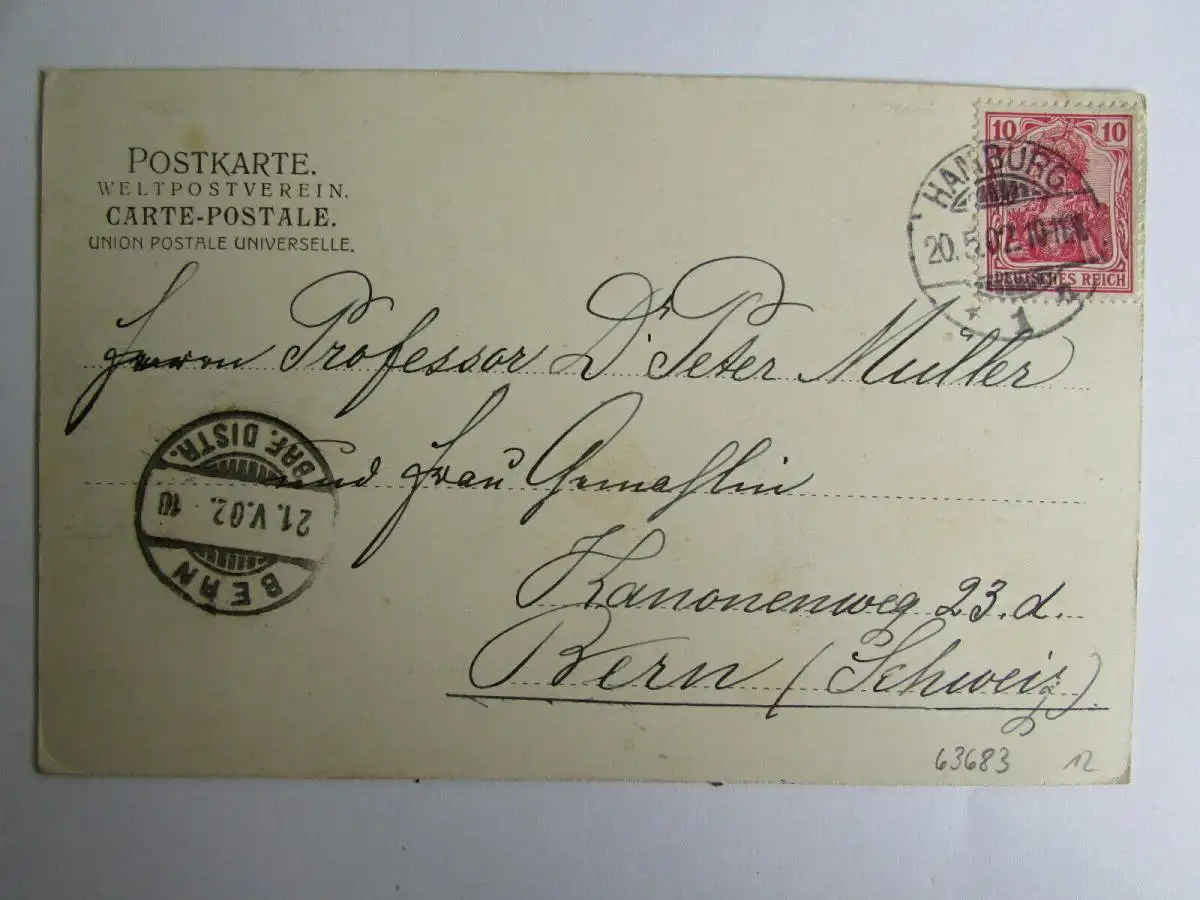 POSTKARTE.
WELTPOSTVEREIN.
CARTE-POSTALE.
UNION POSTALE UNIVERSELLE.
10 10
DEUTSCHES REICH
HAMBURG
20.5.02.
1
Herrn Professor Dr Peter Muller
und Frau Gemahlin
Kanonenweg 23.d.
Bern (Schweiz).
BRF. DISTR.
21.V.02. 10
BERN
63683 12